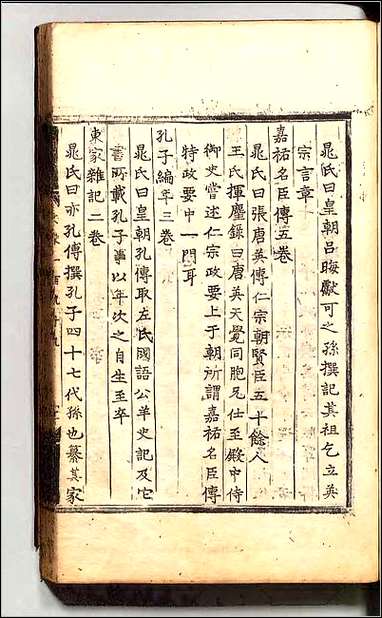 晁氏曰皇朝呂晦獻可之孫撰記其祖乞立英
宗言章
嘉祐名臣傳五卷
晁氏曰張唐英傳仁宗朝賢臣五十餘人
王氏揮麈錄曰唐英天覺同胞兄仕至殿中侍
御史嘗述仁宗政要上于朝所謂嘉祐名臣傳
特政要中一門耳
孔子編年三卷
晁氏曰皇朝孔傳取左氏國語公羊史記及它
書所載孔子事以年次之自生至卒
東家雜記二卷
晁氏曰亦孔傳撰孔子四十七代孫也纂其家